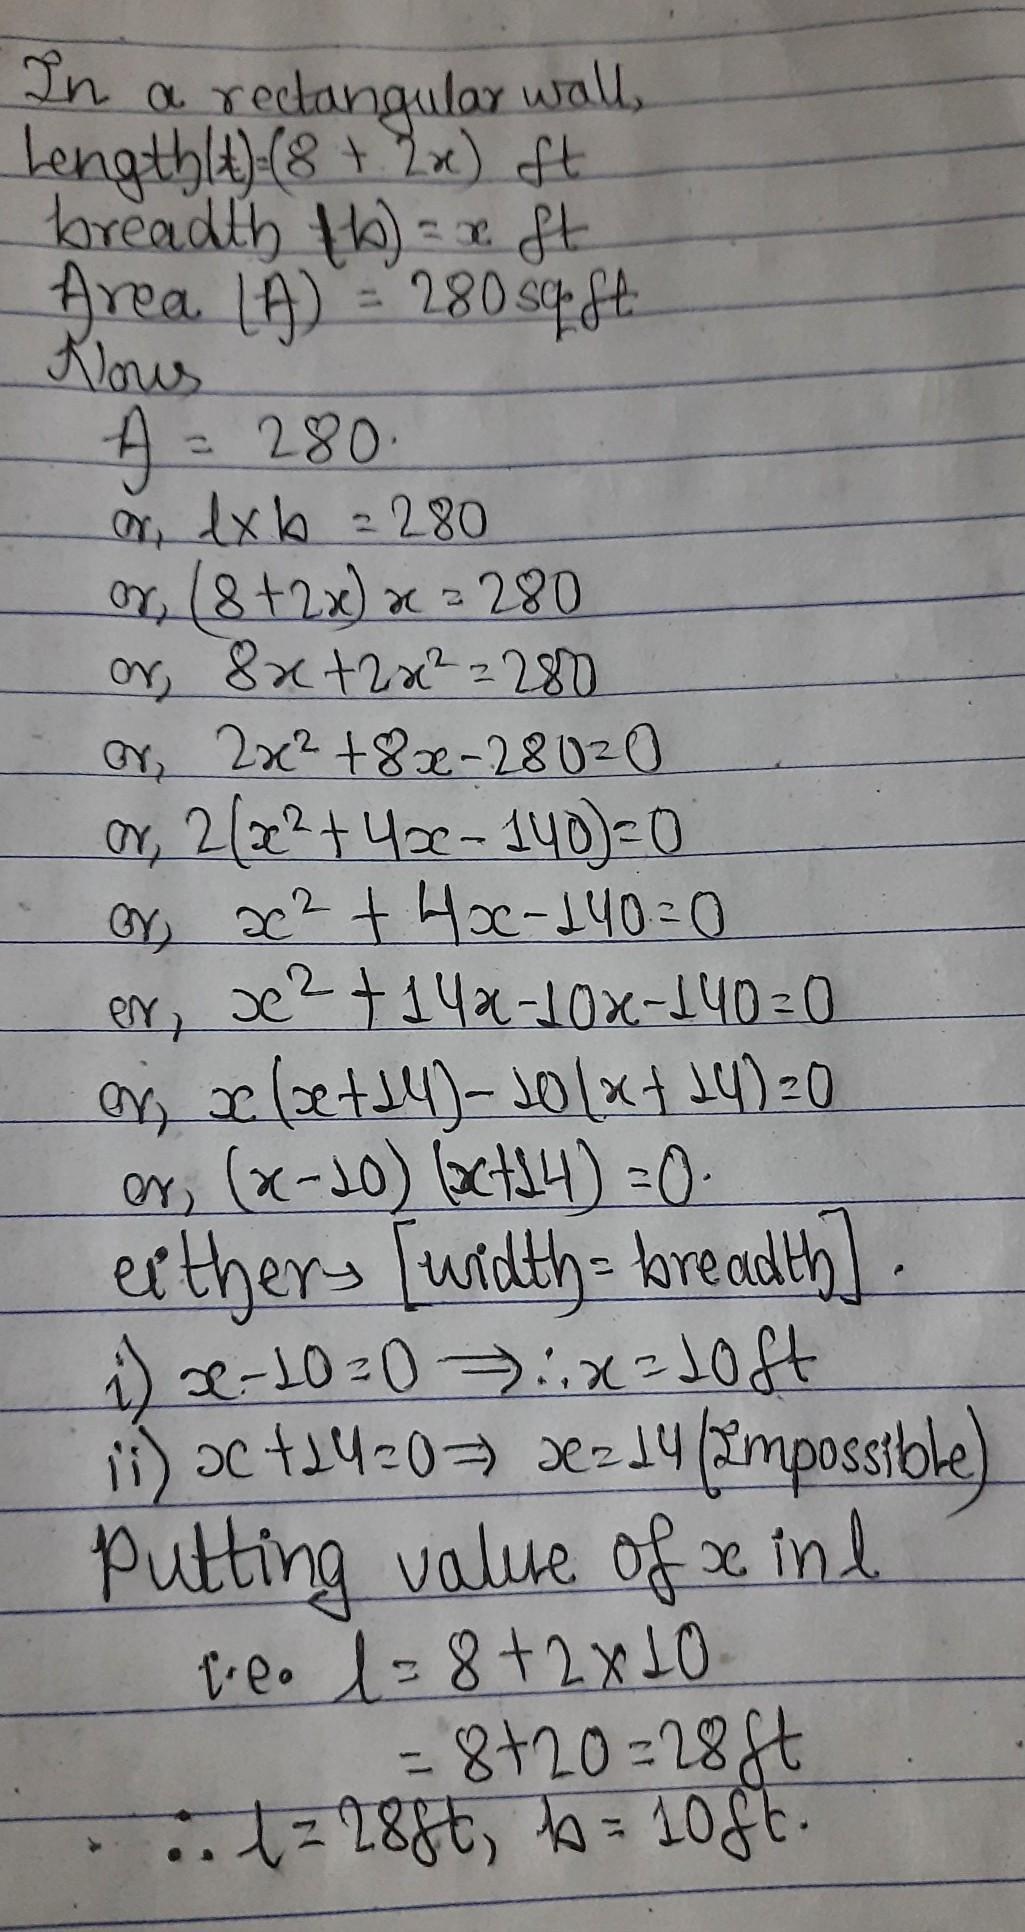 In a rectangular wall,
Length(l)=(8 + 2x) ft
breadth (b) = x ft
Area (A) = 280 sq.ft
Now
A = 280.
or, l×b = 280
or, (8+2x) x = 280
or, 8x+2x² = 280
or, 2x² +8x-280=0
or, 2(x²+4x-140)=0
or, x² + 4x-140=0
or, x² +14x-10x-140=0
or, x(x+14)-10(x+14)=0
or, (x-10) (x+14) =0.
either→ [width= breadth].
i) x-10=0 ⇒∴x=10ft
ii) x+14=0⇒ x=14 (Impossible)
Putting value of x in l
i.e. l = 8+2×10
= 8+20=28ft
∴ l=28ft, b= 10ft.